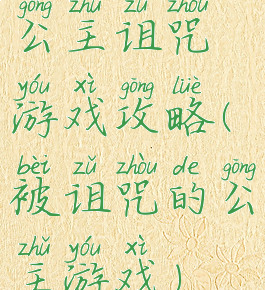 gōng zhǔ zǔ zhòu
公主诅咒
yóu xì gōng lüè
游戏攻略(
bèi zǔ zhòu de gōng
被诅咒的公
zhǔ yóu xì
主游戏)